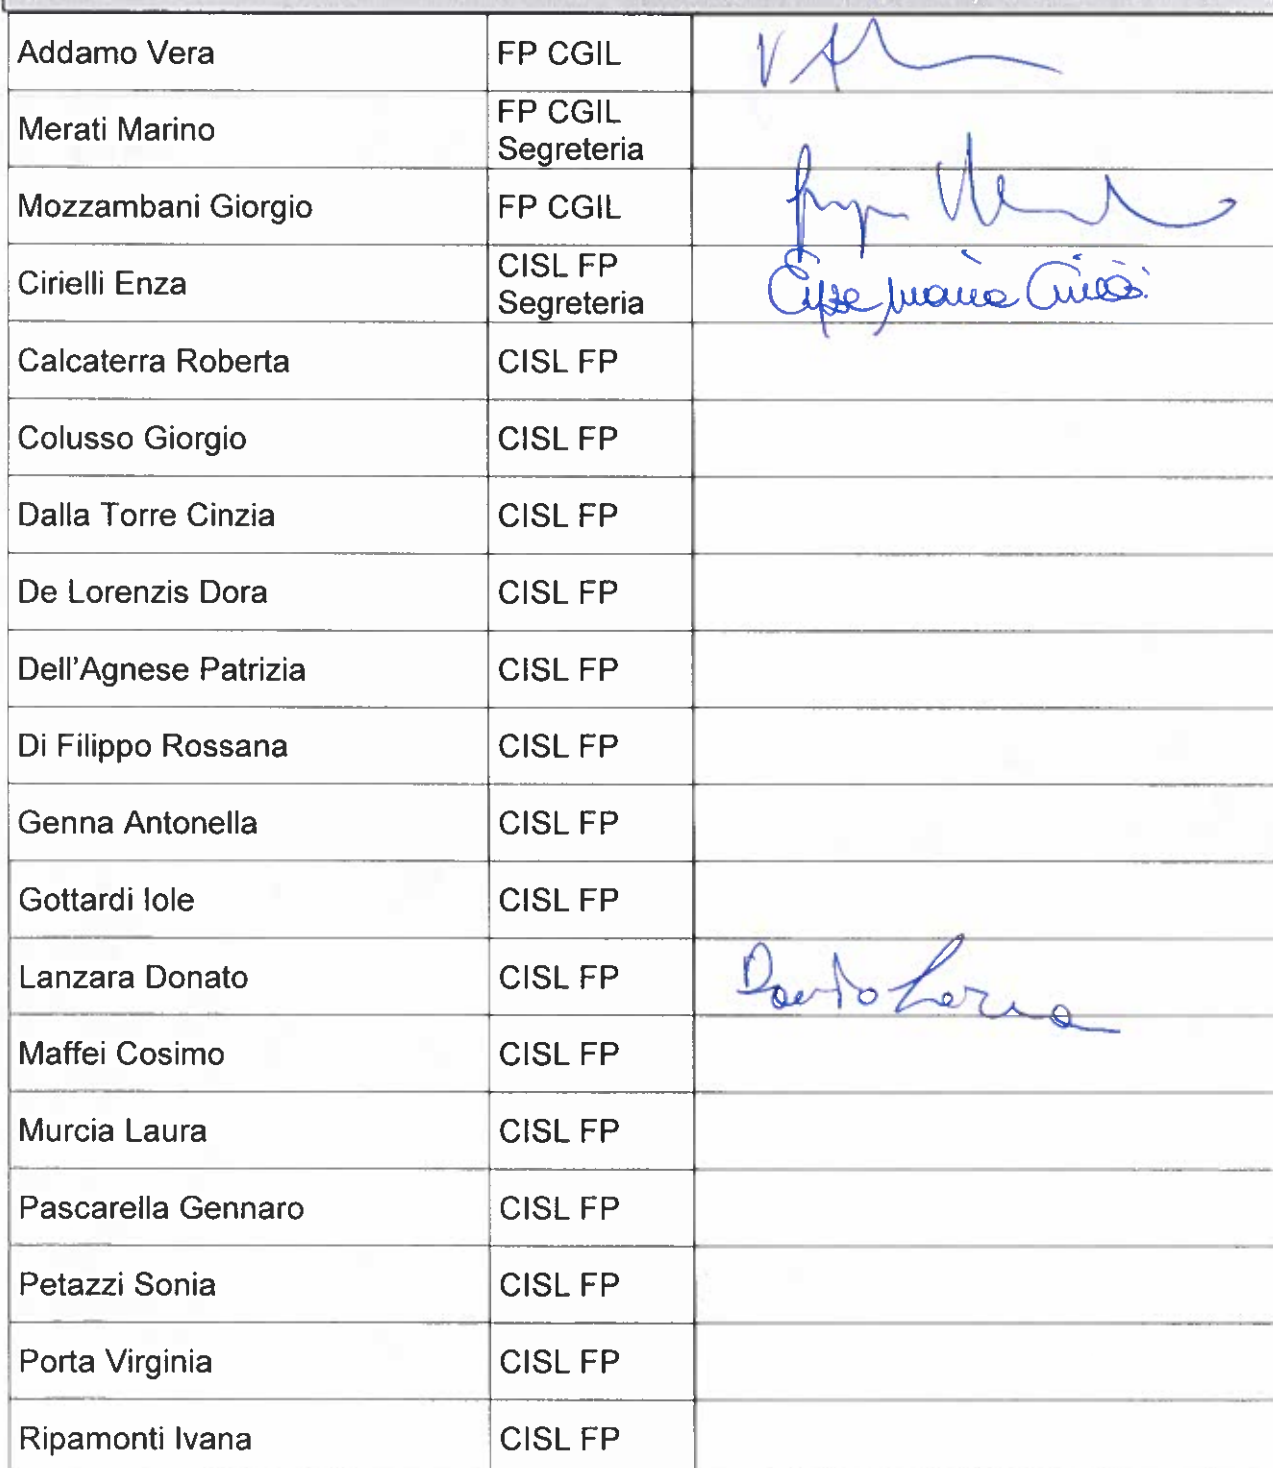 Addamo Vera FP CGIL
Merati Marino FP CGIL
Segreteria
Mozzambani Giorgio FP CGIL
Cirielli Enza CISL FP
Segreteria
Calcaterra Roberta CISL FP
Colusso Giorgio CISL FP
Dalla Torre Cinzia CISL FP
De Lorenzis Dora CISL FP
Dell'Agnese Patrizia CISL FP
Di Filippo Rossana CISL FP
Genna Antonella CISL FP
Gottardi Iole CISL FP
Lanzara Donato CISL FP
Maffei Cosimo CISL FP
Murcia Laura CISL FP
Pascarella Gennaro CISL FP
Petazzi Sonia CISL FP
Porta Virginia CISL FP
Ripamonti Ivana CISL FP